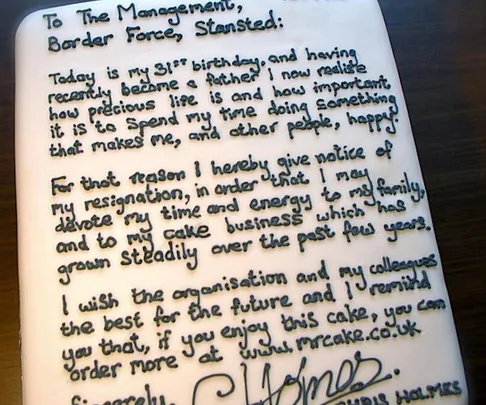 To The Management,
Border Force, Stansted:
Today is my 31st birthday, and having
recently become a father I now realise
how precious life is and how important
it is to spend my time doing something
that makes me, and other people, happy.
For that reason I hereby give notice of
my resignation, in order that I may
devote my time and energy to my family,
and to my cake business which has
grown steadily over the past few years.
I wish the organisation and my colleagues
the best for the future and I remind
you that, if you enjoy this cake, you can
order more at www.mrcake.co.uk
Sincerely, C Holmes.
CHRIS HOLMES